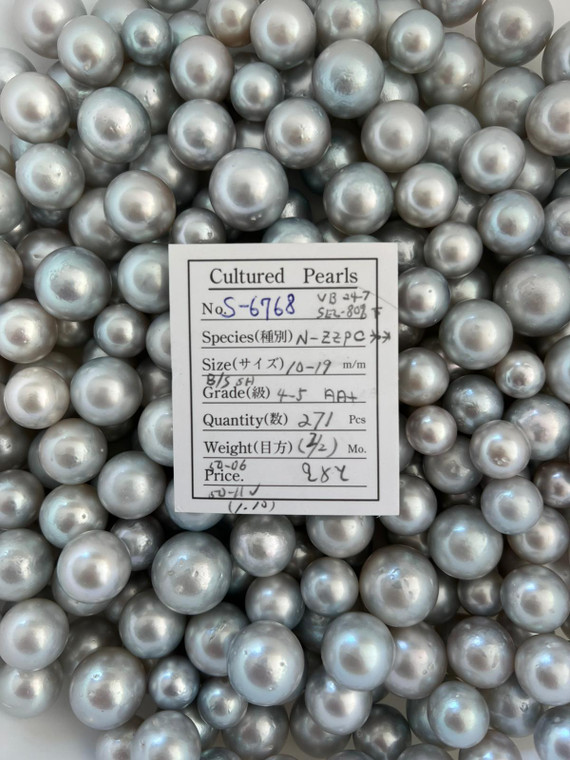 Cultured Pearls
No. S-6768 VB 24-7
SEL-808
Species(種別) N-ZZPC
Size(サイズ) 10-19 m/m
B/S SH
Grade(級) 4-5 AA+
Quantity(数) 271 Pcs
Weight(目方) Mo.
50-06
Price.
50-11 ✓
(1.10)